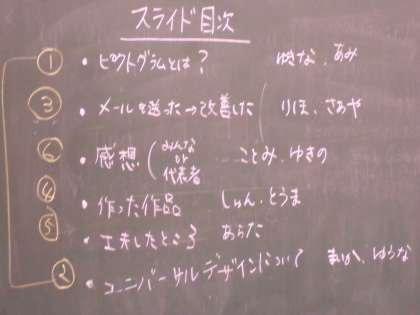 スライド目次
① ・ピクトグラムとは? ゆきな、あみ
③ ・メールを送った→改善した りほ、さあや
⑥ ・感想(みんな or 代表者 … ことみ、ゆきの
④ ・作った作品 しゅん、とうま
⑤ ・工夫したところ あらた
② ・ユニバーサルデザインについて まいか、ゆうな